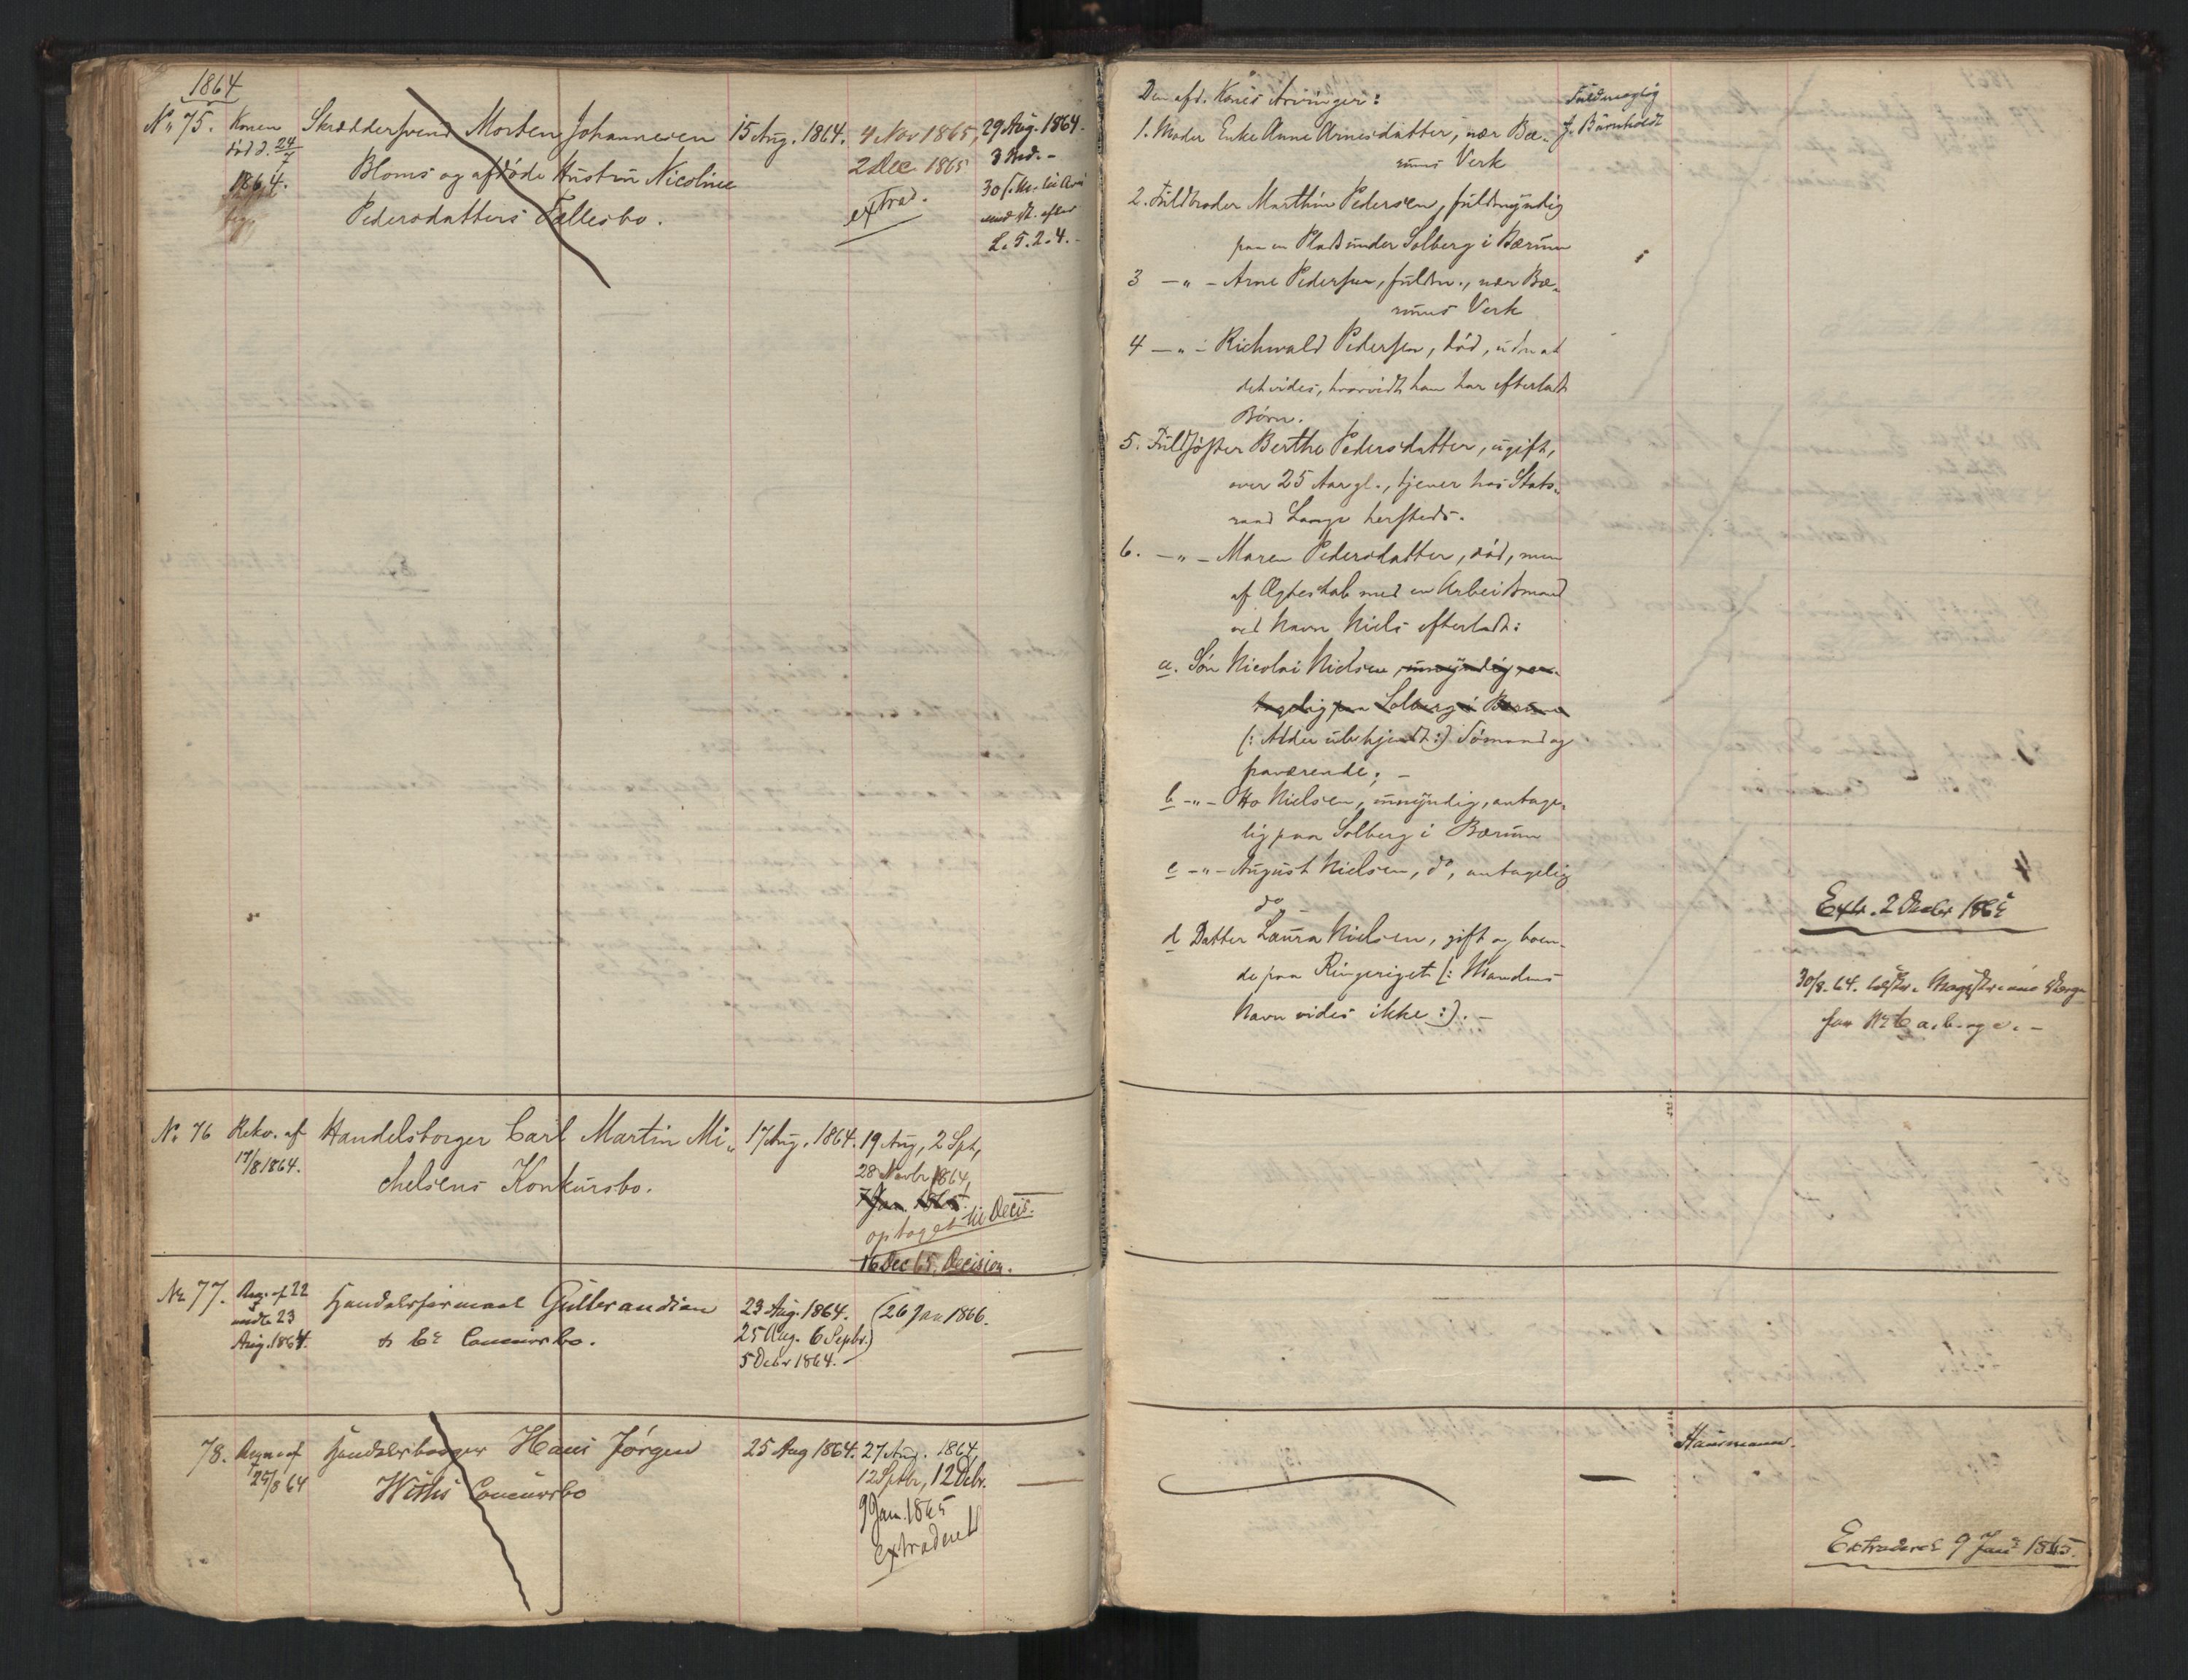 1864
No 75.
Konen
død d. 24/7
1864.
Skræddersvend Morten Johannesen
Bloms og afdøde Hustru Nicoline
Pedersdatters Fællesbo.
15 Aug. 1864.
4 Nov 1865,
2 Dec. 1865
extrad.
29 Aug. 1864.
L. 5.2.4.-
No 76
Rekv. af
17/8 1864.
Handelsborger Carl Martin Mi-
chelsens Konkursbo.
17 Aug. 1864.
19 Aug, 2 Spt,
28 Novbr 1864,
7 Jan. 1865.
optaget til Decis.
16 Dec 65. Decision.
No 77.
Req. af 22
23
Aug. 1864.
Handelsfirmaet Gulbrandsen
& Co Concursbo.
23 Aug. 1864.
25 Aug. 6 Sepbr.
5 Debr 1864.
26 Jan 1866.
78.
25/8 64
Handelsborger Hans Jørgen
Concursbo
25 Aug 1864.
27 Aug. 1864,
12 Sptbr, 12 Debr.
9 Jan. 1865
extraderet
Den afd. Kones Arvinger:
1. Moder Enke Anne Arnesdatter, nær Bæ-
rums Verk
2. Fuldbroder Marthin Pedersen, fuldmyndig
paa en Plads under Solberg i Bærum
3 -"- Arne Pedersen, fuldm., nær Bæ-
rums Verk
4 -"- Richwald Pedersen, død, uden at
det vides, hvorvidt han har efterladt
Børn.
5. Fuldsøster Berthe Pedersdatter, ugift,
over 25 Aar gl., tjener hos Stats-
raad Lange hersteds.
6. -"- Maren Pedersdatter, død, men
af Ægteskab med en Arbeidsmand
ved Navn Niels efterladt:
a. Søn Nicolai Nielsen, umyndig, an-
tagelig paa Solberg i Bærum
(: Alder ubekjendt :) Sømand og
fraværende; -
b -"- Otto Nielsen, umyndig, antage-
lig paa Solberg i Bærum
c -"- August Nielsen, do, antagelig
do -
d Datter Laura Nielsen, gift og boen-
de paa Ringeriget (: Mandens
Navn vides ikke :). -
Fuldmægtig
J. Barnholdt
Extr. 2 Decbr 1865
30/8. 64.
for No 6 a. b. og c. -
Hansmann.
Extraderet 9 Jan 1865.